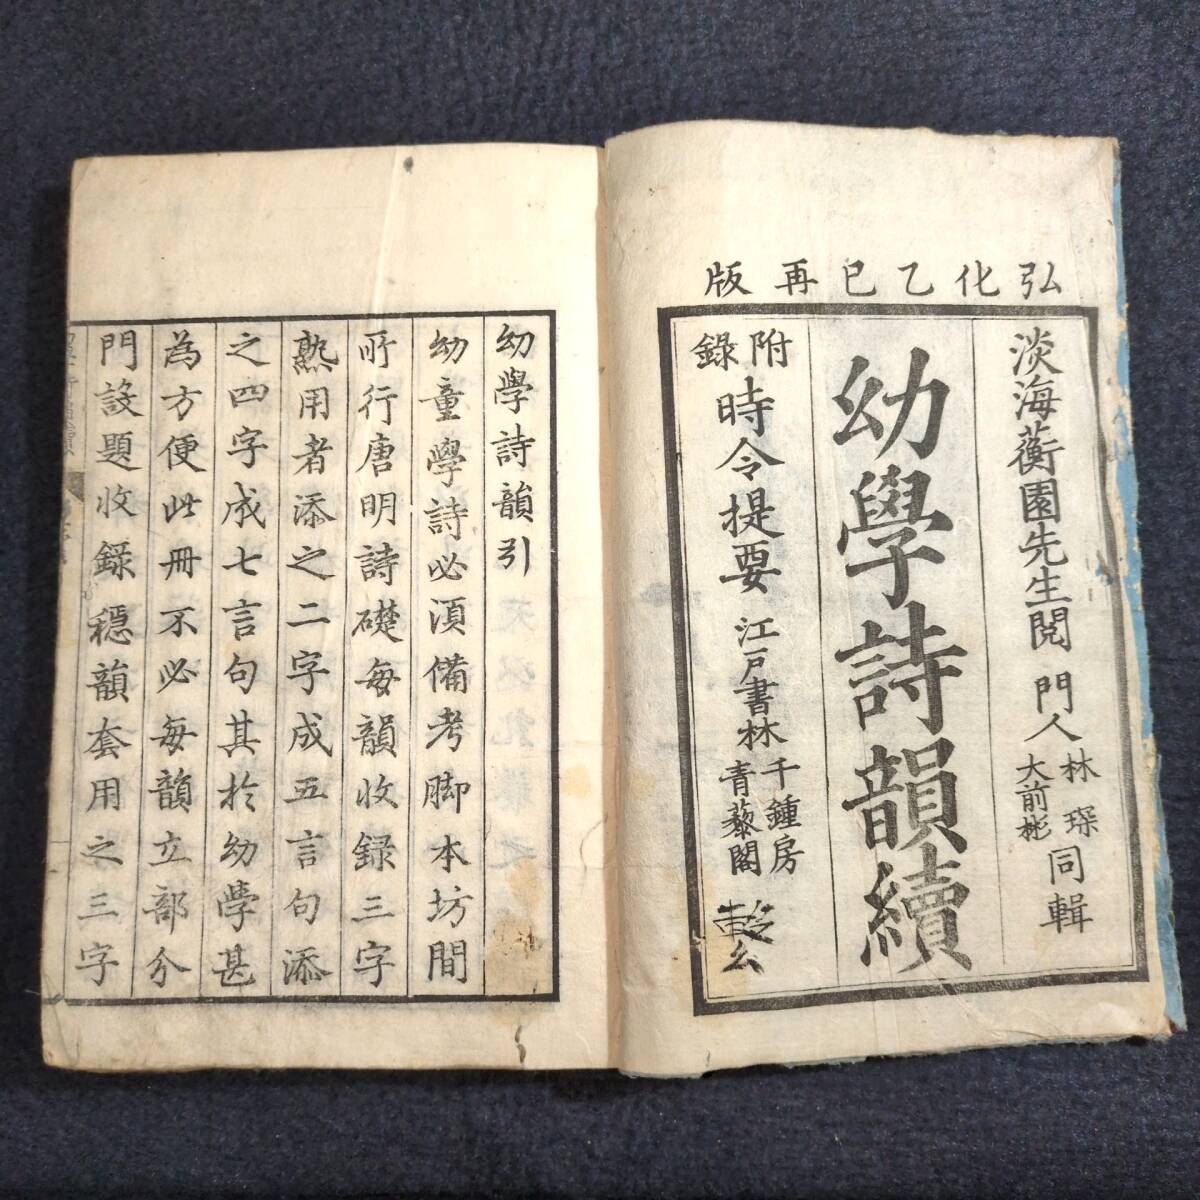 弘化乙巳再版
淡海蘅園先生閲 門人 林琛 大前彬 同輯
幼學詩韻續
附録 時令提要 江戸書林 千鍾房 青藜閣
幼學詩韻引
幼童學詩必須備考脚本坊間
所行唐明詩礎每韻收録三字
熟用者添之二字成五言句添
之四字成七言句其於幼學甚
為方便此冊不必每韻立部分
門設題收録穩韻套用之三字